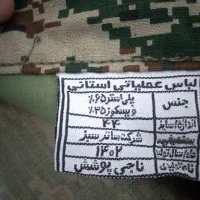 لباس عملیاتی استانی
جنس
پلی استر ۶۵٪
ویسکوز ۳۵٪
اندازه / سایز
۴۴
شرکت سازر سبز
۱۴۰۲
ناجی پوشش